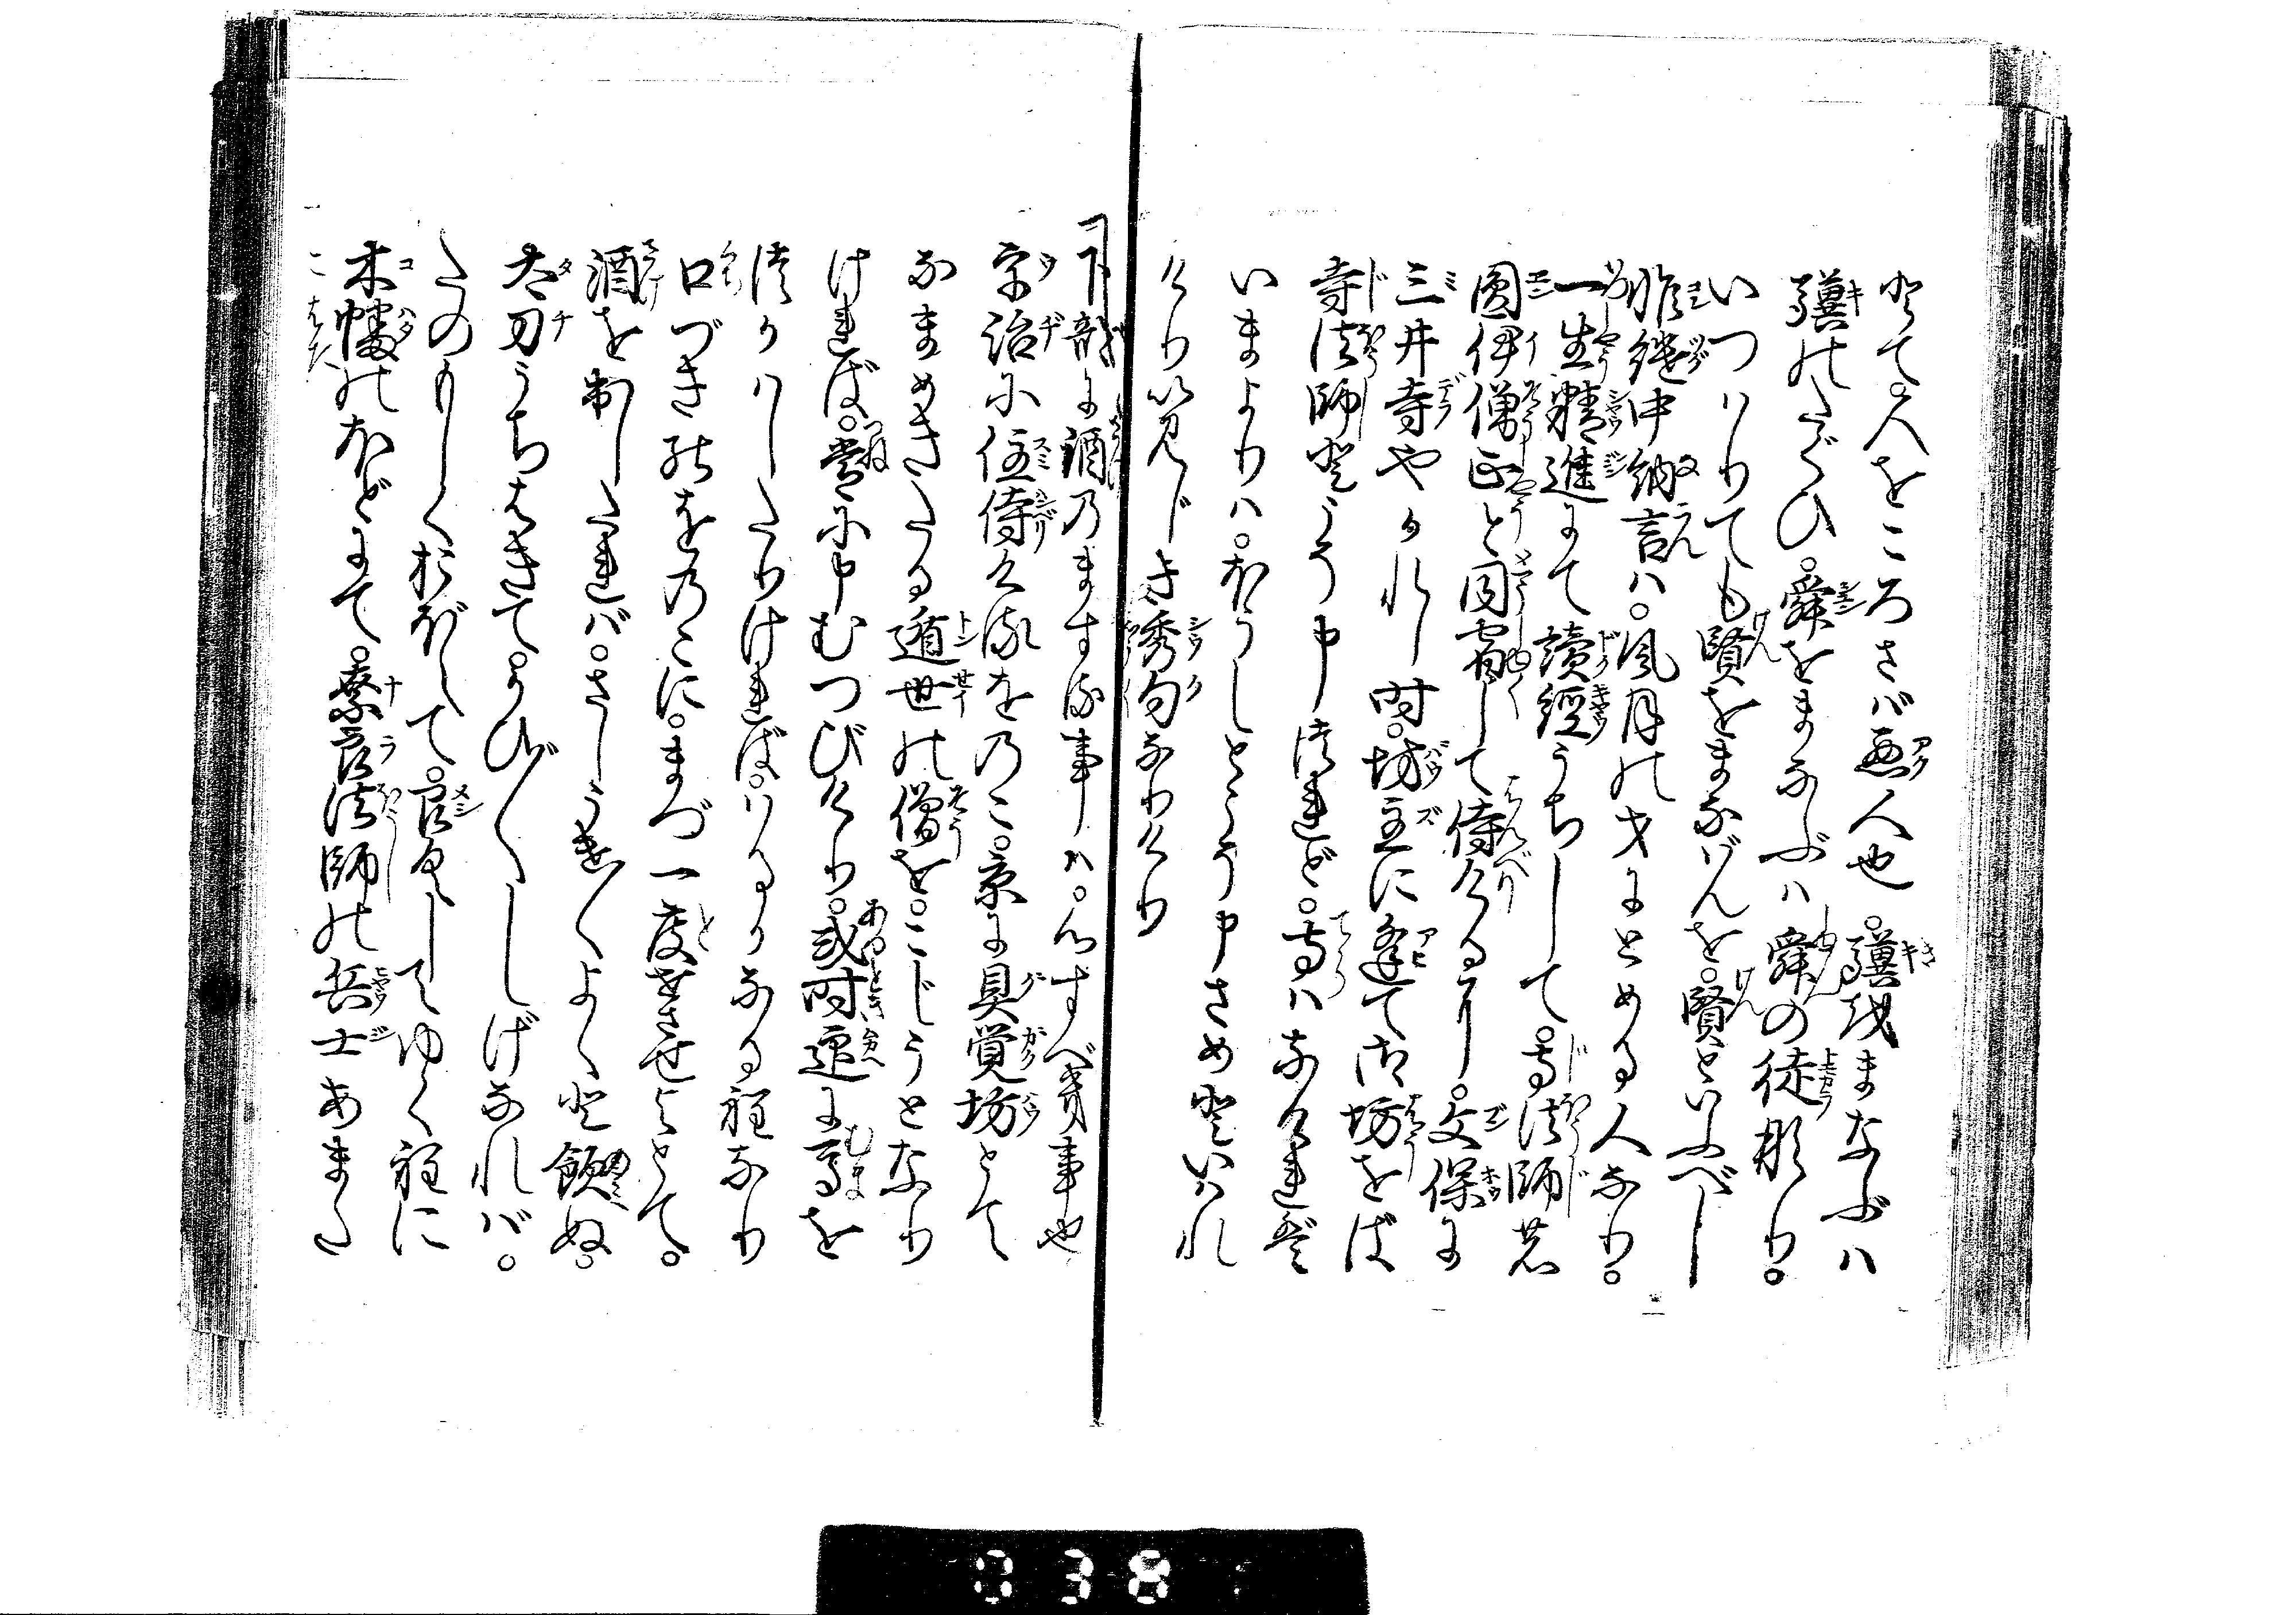 とて。人をころさバ悪人也。驥をまなぶハ
驥のたぐひ。舜をまなぶハ舜の徒也。
いつハりても賢をまなばんを。賢といふべし
惟継中納言ハ。風月の才にとめる人なり。
一生精進にて讀經うちして。寺法師の
圓伊僧正と同宿して侍けるに。文保に
三井寺やかれし時。坊主に逢て御坊をば
寺法師とこそ申つれど。寺ハなければ
いまよりハ。ほうしとこそ申さめといはれ
けりいみじき秀句なりけり
下部に酒のまする事ハ。心すべき事也
宇治に住侍けるをのこ。京に具覚坊とて
なまめきたる遁世の僧を。こじうとなり
ければ。常に申むつびけり。或時迎に馬を
つかハしたりければ。ハるかなる程なり
口づきのをのこに。まづ一度せさせよとて。
酒を出したれバ。さしうけ〱よゝと飲ぬ。
太刀うちはきて。かひ〴〵しげなれバ。
たのもしくおぼえて。召具してゆく程に
木幡のほどにて。奈良法師の兵士あまた
こはた
038